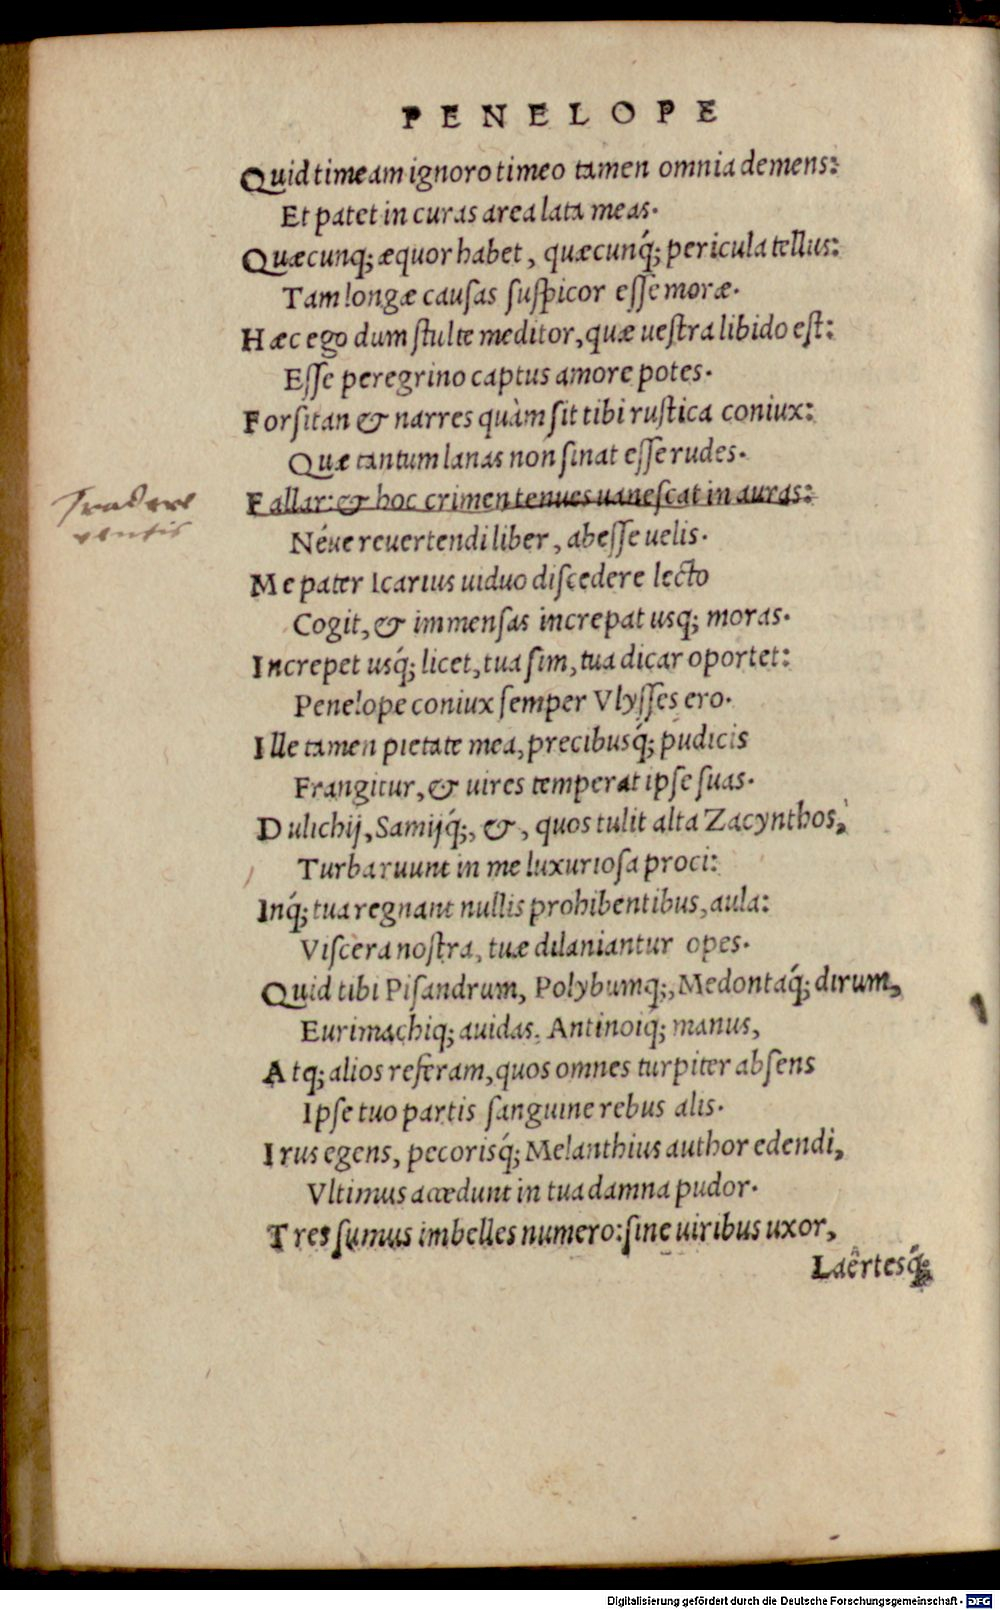 PENELOPE
Quid timeam ignoro timeo tamen omnia demens:
Et patet in curas area lata meas.
Quæcunq; æquor habet, quæcunq́; pericula tellus:
Tam longæ causas suspicor esse moræ.
Hæc ego dum stulte meditor, quæ uestra libido est:
Esse peregrino captus amore potes.
Forsitan & narres quàm sit tibi rustica coniux:
Quæ tantum lanas non sinat esse rudes.
Fallar: & hoc crimen tenues uanescat in auras:
Tradere
ventis
Néue reuertendi liber, abesse uelis.
Me pater Icarius uiduo discedere lecto
Cogit, & immensas increpat usq; moras.
Increpet usq́; licet, tua sim, tua dicar oportet:
Penelope coniux semper Vlysses ero.
Ille tamen pietate mea, precibusq́; pudicis
Frangitur, & uires temperat ipse suas.
Dulichij, Samijq́;, &, quos tulit alta Zacynthos,
Turba ruunt in me luxuriosa proci:
Inq́; tua regnant nullis prohibentibus, aula:
Viscera nostra, tuæ dilaniantur opes.
Quid tibi Pisandrum, Polybumq;, Medontaq́; dirum,
Eurimachiq; auidas. Antinoiq́; manus,
Atq; alios referam, quos omnes turpiter absens
Ipse tuo partis sanguine rebus alis.
Irus egens, pecorisq́; Melanthius author edendi,
Vltimus accedunt in tua damna pudor.
Tres sumus imbelles numero: sine uiribus uxor,
Laêrtesq́;
Digitalisierung gefördert durch die Deutsche Forschungsgemeinschaft - DFG